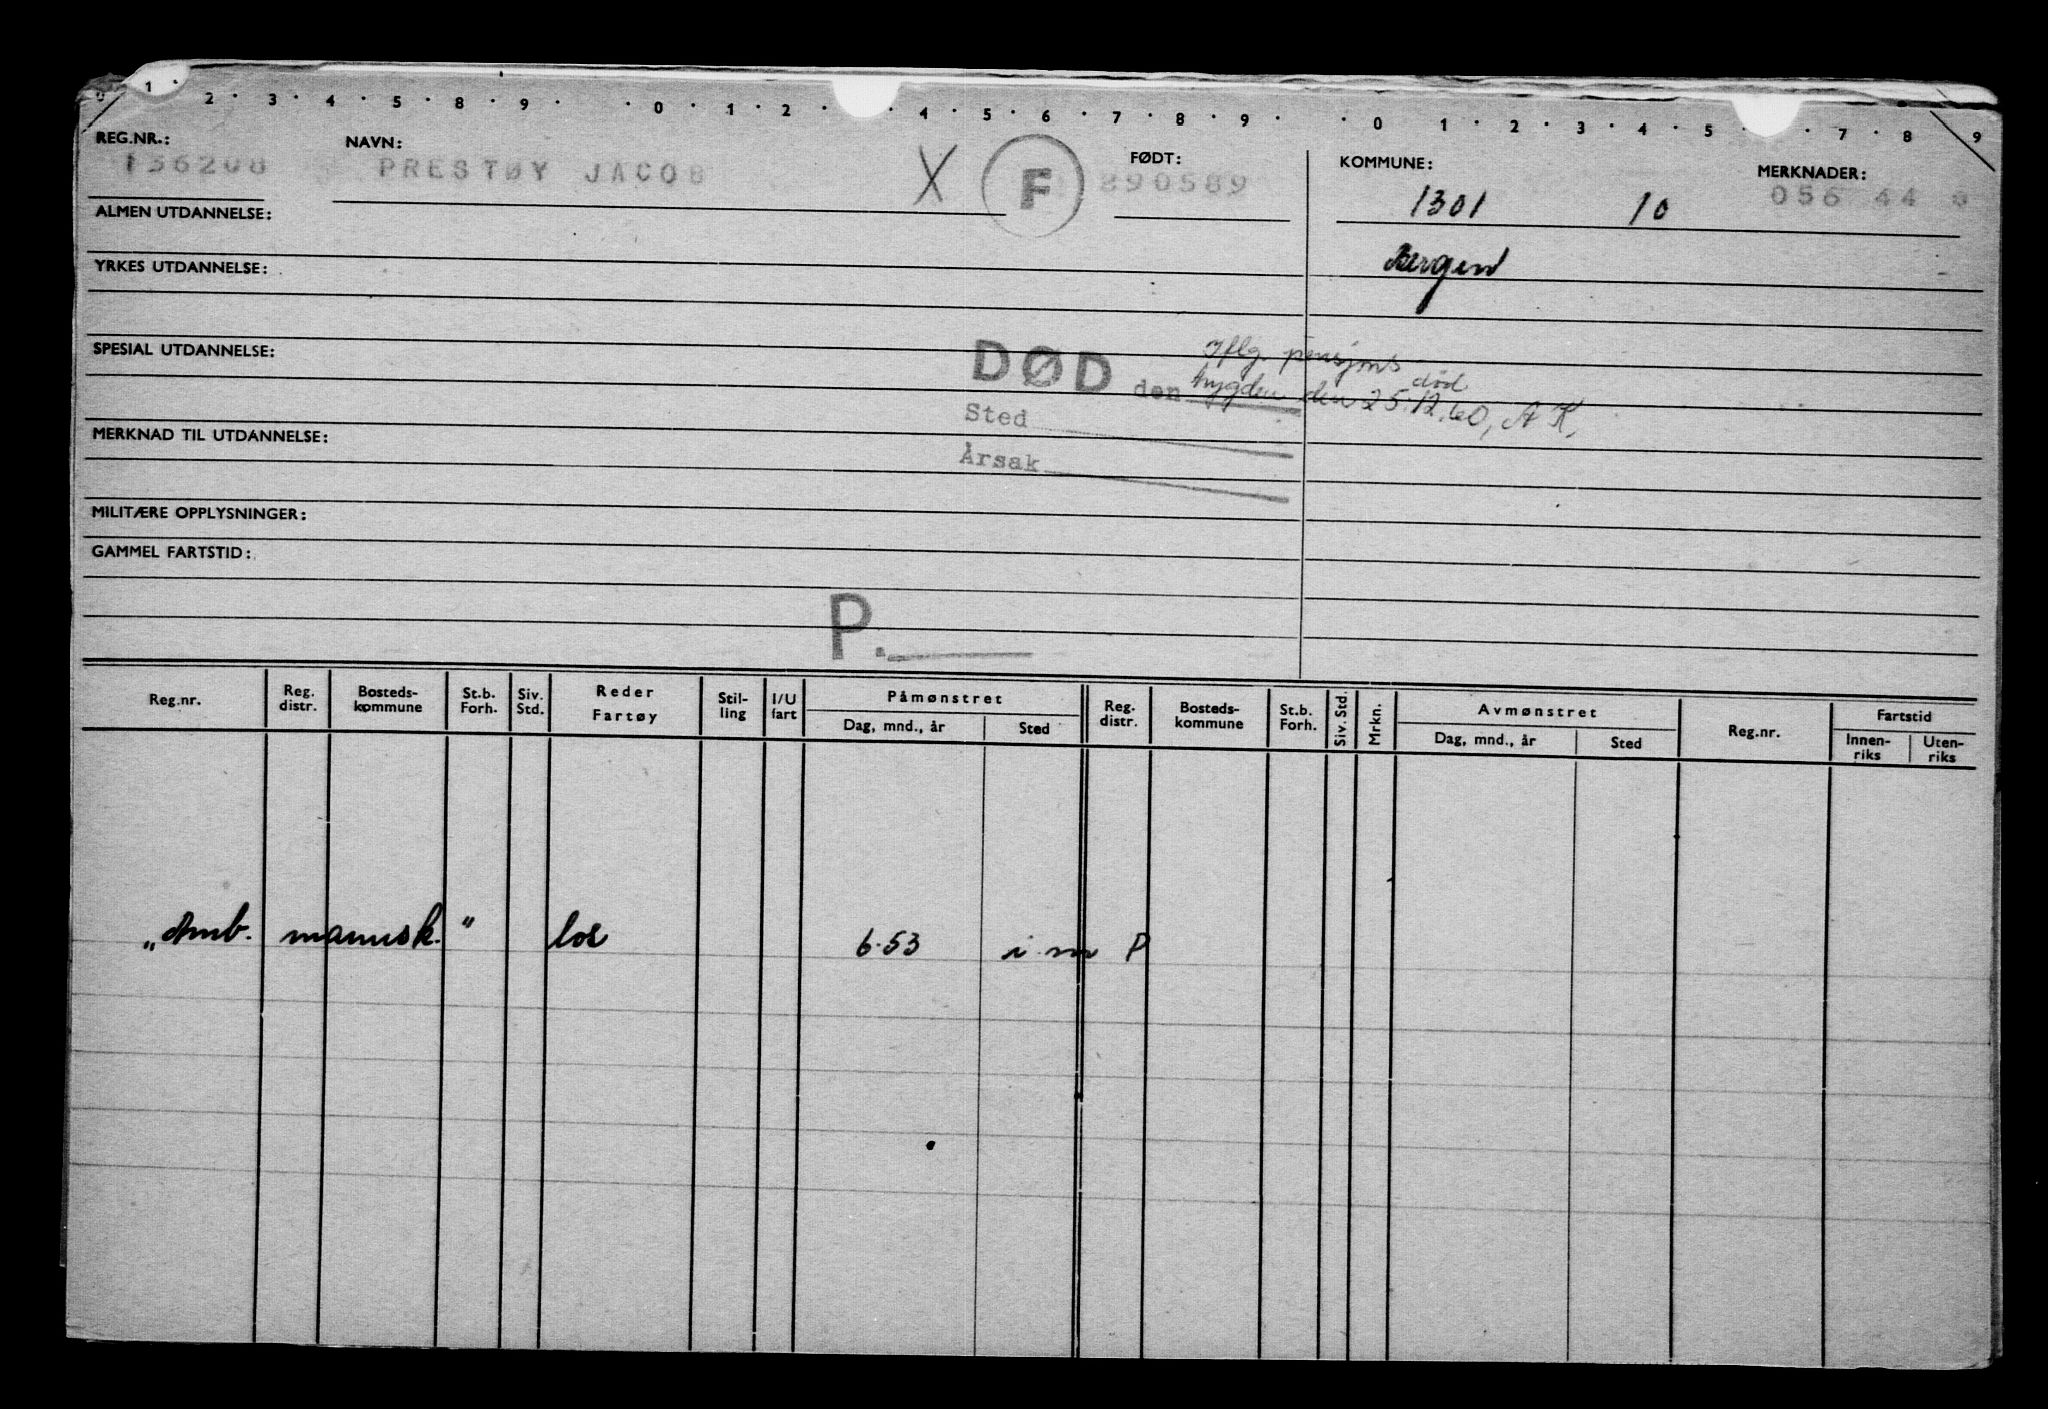 1 · 2 · 3 · 4 · 5 · 8 · 9 · · 0 · 1 · 2 · · 4 · 5 · 6 · 7 · 8 · 9 · · 0 · 1 · 2 · 3 · 4 · 5 · · 7 · 8 · 9
REG.NR.: NAVN: FØDT: KOMMUNE: MERKNADER:
136208 PRESTØY JACOB X F 890589 1301 10 056 44
ALMEN UTDANNELSE:
Bergen
YRKES UTDANNELSE:
SPESIAL UTDANNELSE:
DØD den Iflg. pensjons
trygden død den 25.12.60, A K.
Sted
MERKNAD TIL UTDANNELSE:
Årsak
MILITÆRE OPPLYSNINGER:
GAMMEL FARTSTID:
P.
Reg.nr. Reg. distr. Bosteds-kommune St.b. Forh. Siv. Std. Reder Fartøy Stil-ling I/U fart Påmønstret Reg. distr. Bosteds-kommune St.b. Forh. Siv. Std. Mrkn. Avmønstret Reg.nr. Fartstid
Dag, mnd., år Sted Dag, mnd., år Sted Innen-riks Uten-riks
„Amb. mannsk." los 6.53 i m P